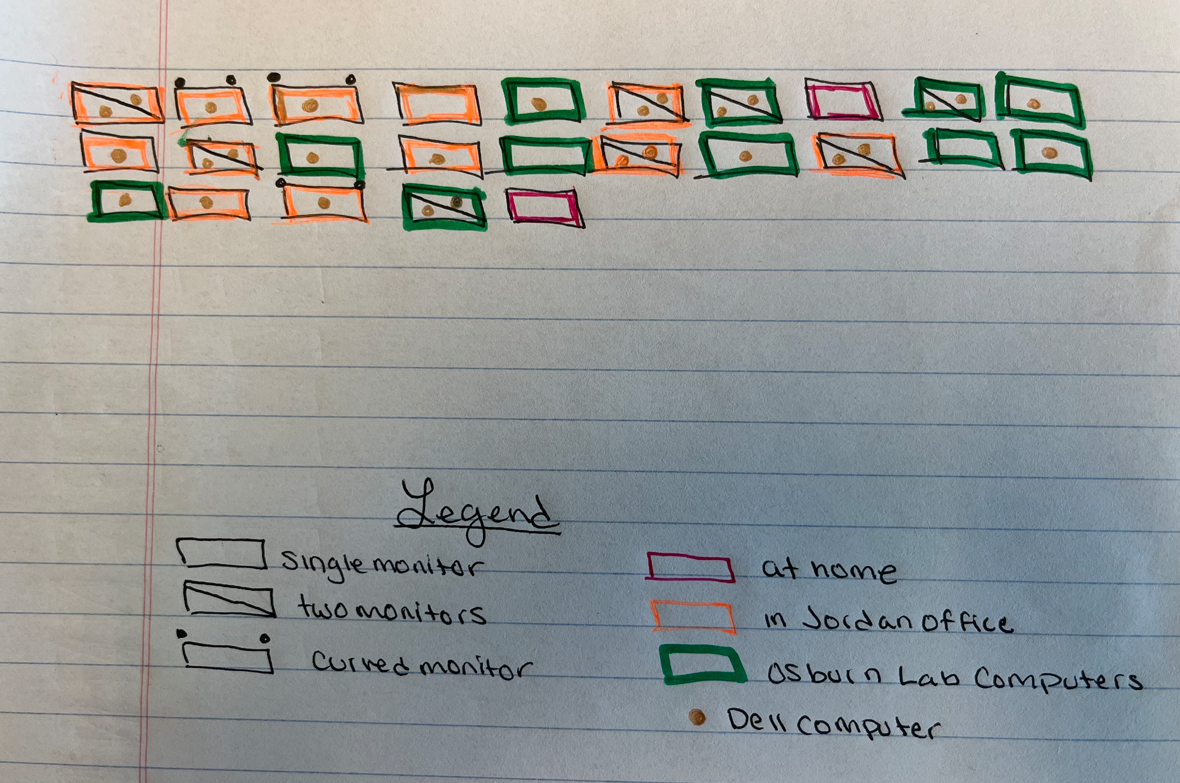 Legend
single monitor
two monitors
curved monitor
at home
in Jordan office
Osburn Lab Computers
Dell computer